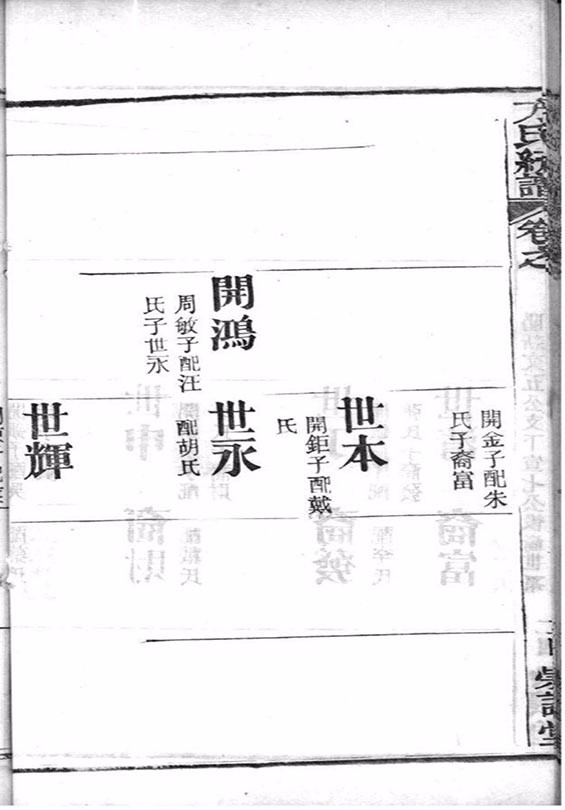 氏統譜
卷之
開金子配朱
氏子裔富
世本
開鉅子配戴
氏
開鴻
周敏子配汪
氏子世永
世永
配胡氏
世輝